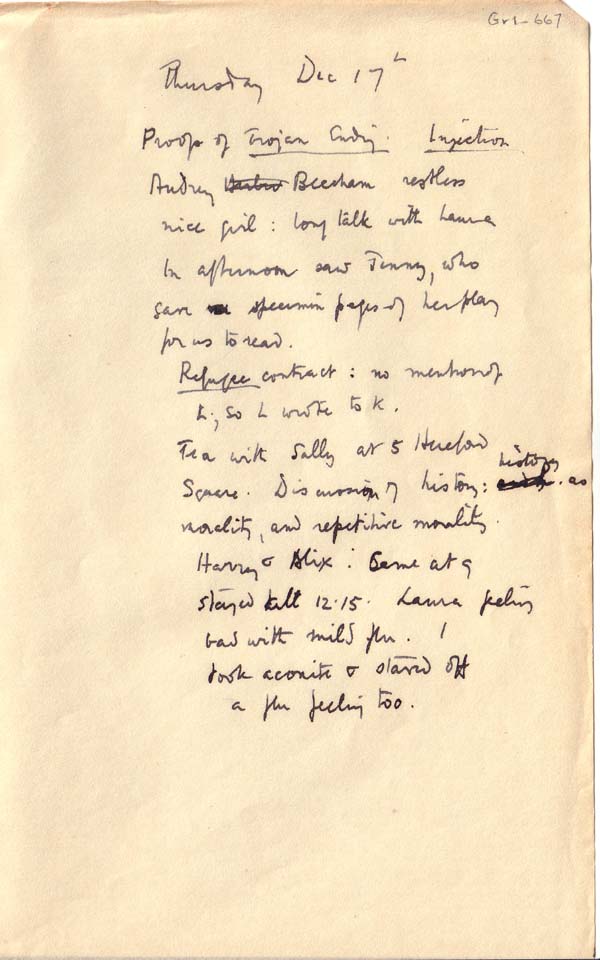 Gr1-667
Thursday Dec 17th
Proofs of Trojan Ending. Injection
Audrey Beecham restless
nice girl: long talk with Laura
In afternoon saw Jenny, who
gave specimin pages of her play
for us to read.
Refugee contract: no mention of
L; so L wrote to K.
Tea with Sally at 5 Hereford
Square. Discussion of history: history as
morality, and repetitive morality.
Harry & Alix: Came at 9
stayed till 12.15. Laura feeling
bad with mild flu. I
took aconite & staved off
a flu feeling too.